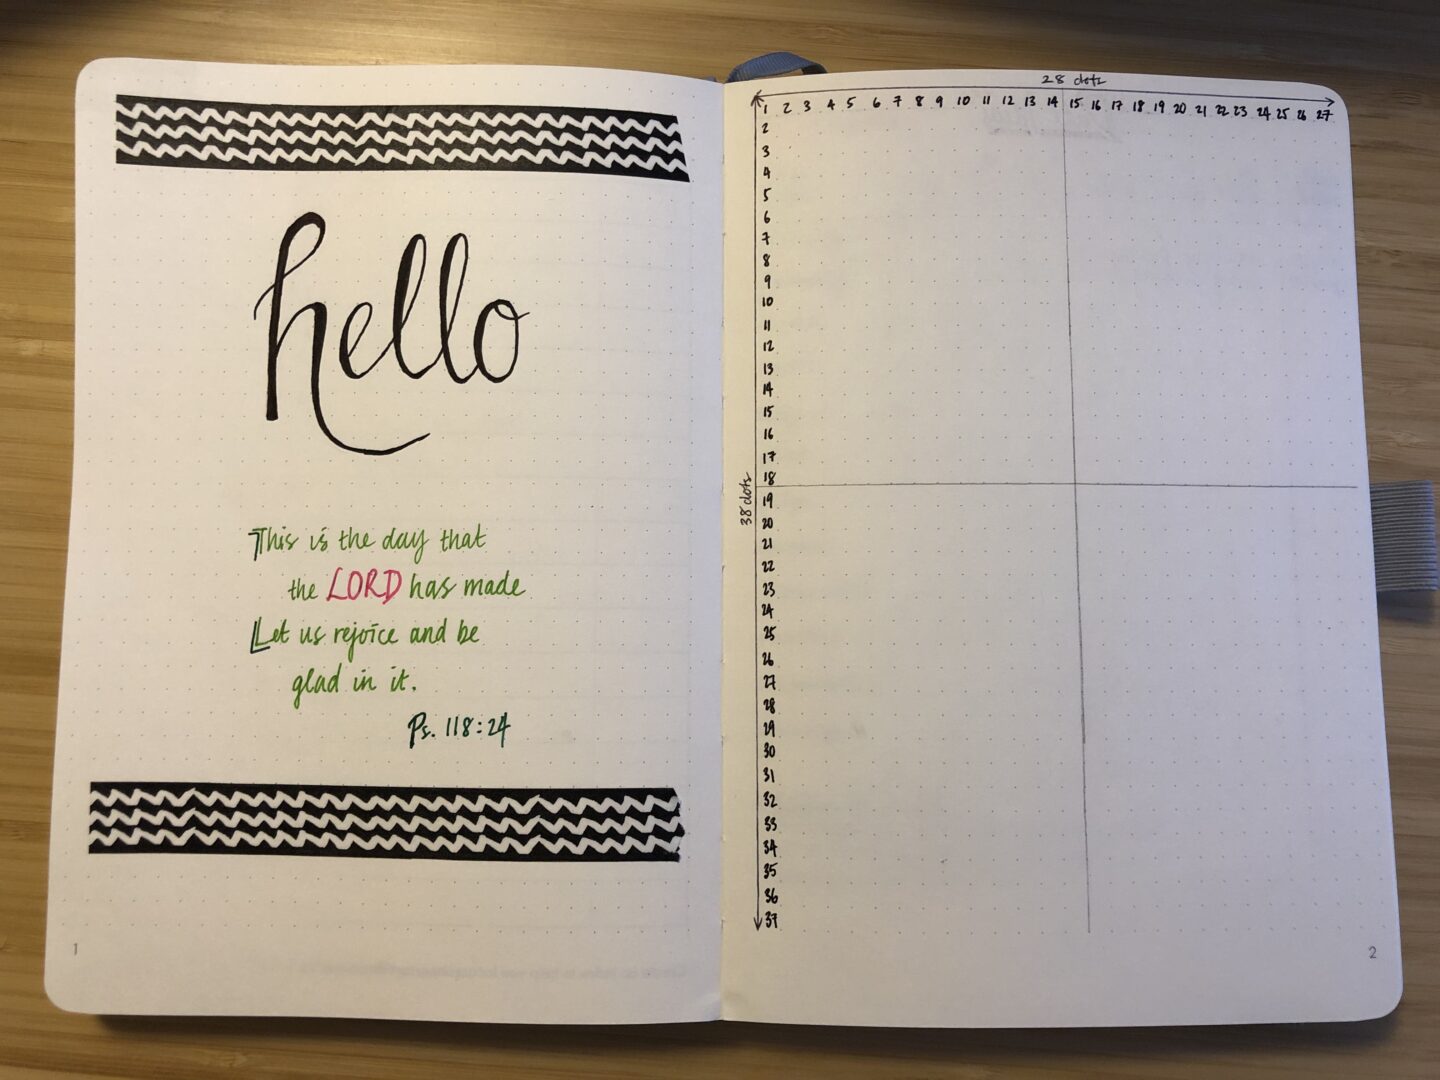 hello
This is the day that
the LORD has made
Let us rejoice and be
glad in it.
Ps. 118:24
1
28 dots
1 2 3 4 5 6 7 8 9 10 11 12 13 14 15 16 17 18 19 20 21 22 23 24 25 26 27
2
3
4
5
6
7
8
9
10
11
12
13
14
15
16
17
18
19
20
21
22
23
24
25
26
27
28
29
30
31
32
33
34
35
36
37
38 dots
2